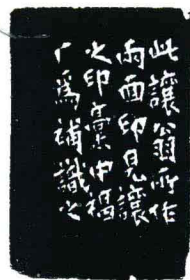 此讓翁所作
兩面印見讓
之印橐中福
厂為補識之